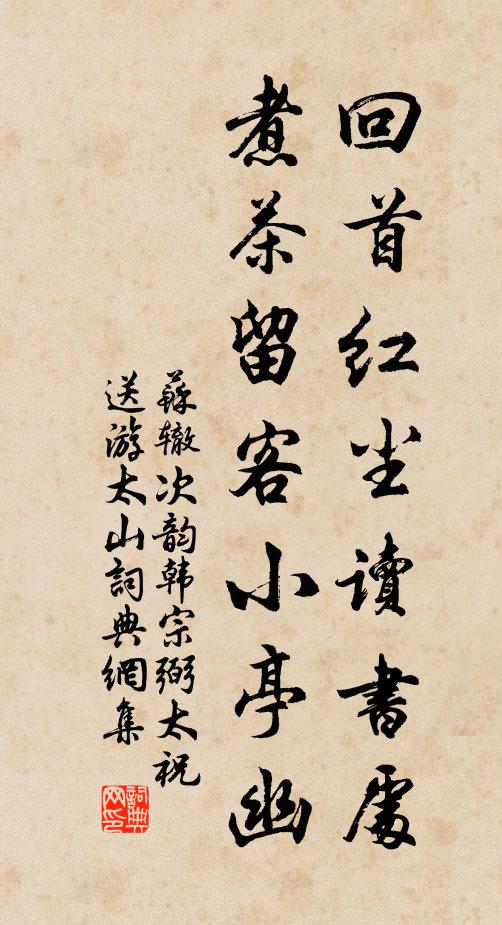 回首红尘读書處
煮茶留客小亭幽
蘇辙次韵韩宗弼太祝
送游太山詞典網集
詞典
网印